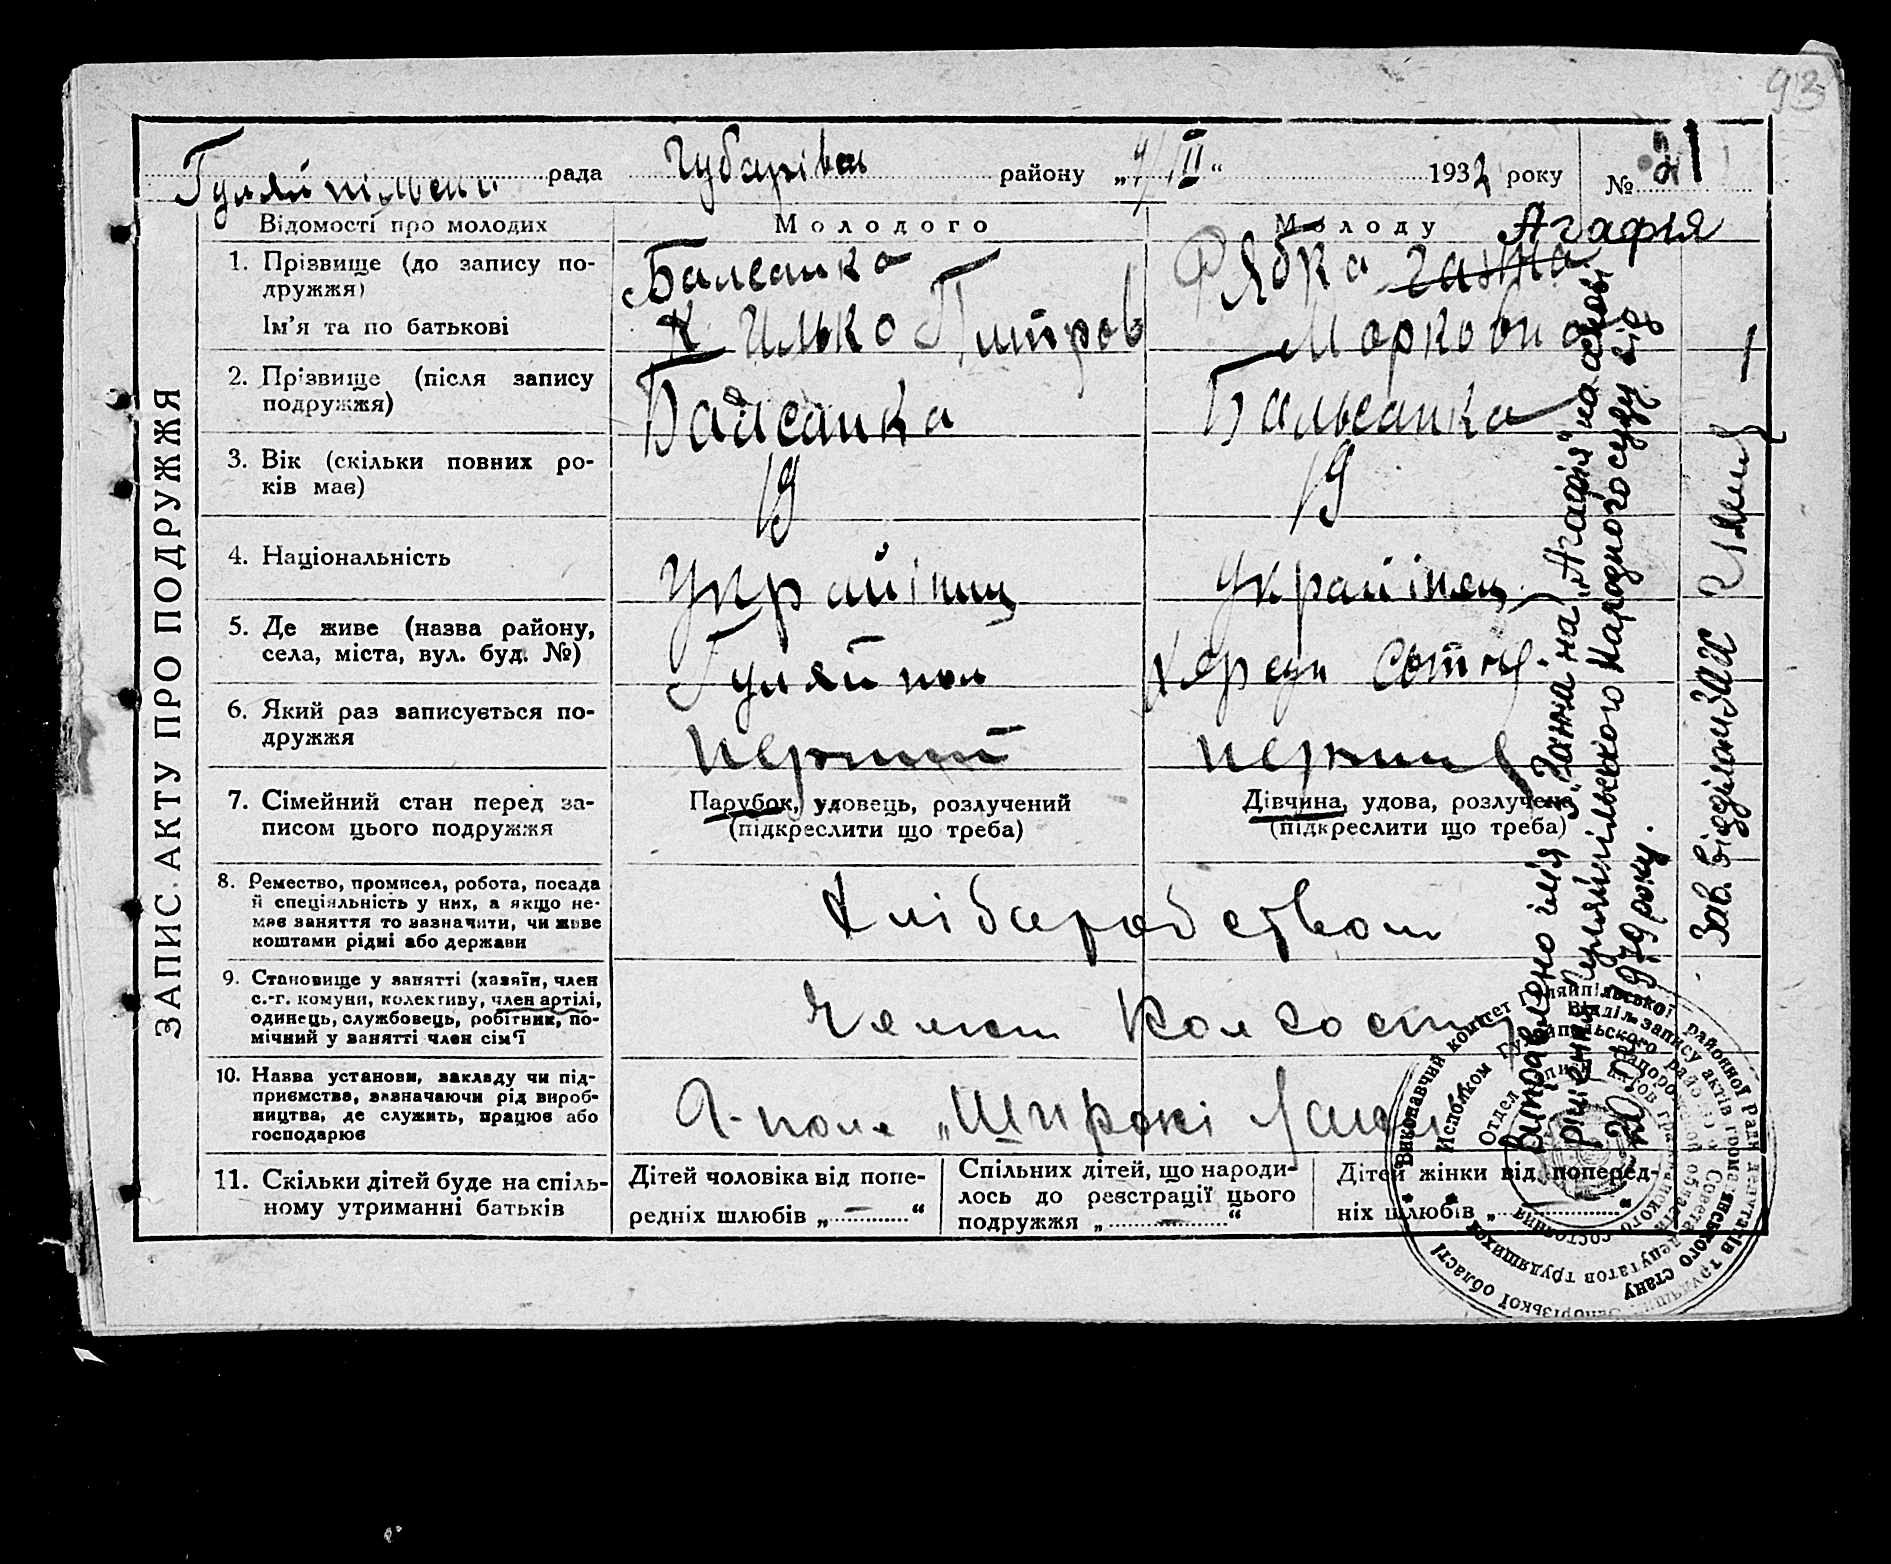 93
Гуляйпільська рада Чубарівськ району „4/II“ 1932 року № 21
ЗАПИС АКТУ ПРО ПОДРУЖЖЯ
Відомості про молодих
Молодого
Молоду
Агафія
1. Прізвище (до запису по-
дружжя)
Ім'я та по батькові
Балсанка
Илько Питров
Рябка Ганна
Марковна
2. Прізвище (після запису
подружжя)
Балсанка
Бальсанка
3. Вік (скільки повних ро-
ків має)
19
19
4. Національність
Украйінец
Украйінец
5. Де живе (назва району,
села, міста, вул. буд. №)
Гуляйпол
Херсун Сотня
6. Який раз записується по-
дружжя
перший
перший
7. Сімейний стан перед за-
писом цього подружжя
Парубок, удовець, розлучений
(підкреслити що треба)
Дівчина, удова, розлучена
(підкреслити що треба)
8. Ремество, промисел, робота, посада
й спеціяльність у них, а якщо не-
має заняття то зазначити, чи живе
коштами рідні або держави
Хлібаробством
9. Становище у занятті (хазяїн, член
с.-г. комуни, колективу, член артілі,
одинець, службовець, робітник, по-
мічний у занятті член сім'ї
Члени Колгоспу
10. Назва установи, закладу чи під-
приємства, зазначаючи рід вироб-
ництва, де служить, працює або
господарює
Г-поле „Широкі Лани
11. Скільки дітей буде на спіль-
ному утриманні батьків
Дітей чоловіка від попе-
редніх шлюбів „ — “
Спільних дітей, що народи-
лось до реєстрації цього
подружжя „ — “
Дітей жінки від поперед-
ніх шлюбів „ “
Виправлено ім'я „Ганна" на „Агафія" на основі
рішення Гуляйпільського Народного суду від
1979 року.
Зав. відділом ЗАГС
Виконавчий комітет Гуляйпільської районної Ради депутатів трудящих Запорізької області
Відділ запису актів громадянського стану
Исполком Гуляйпольского районного Совета депутатов трудящихся Запорожской области
Отдел записи актов гражданского состояния